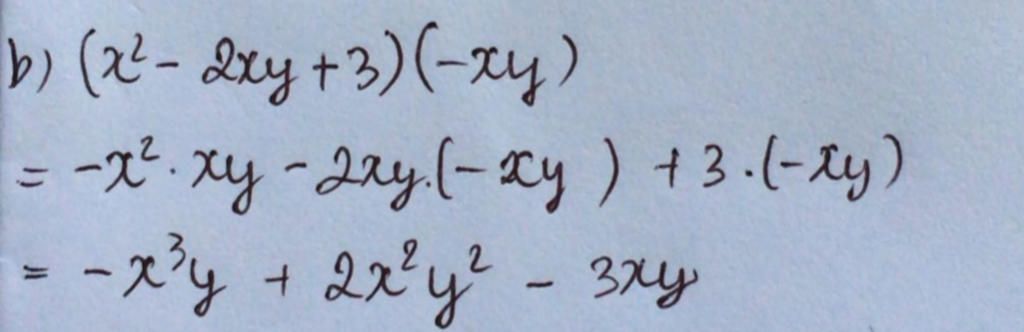 b) (x² - 2xy + 3)(-xy)
= -x² · xy - 2xy.(-xy) + 3.(-xy)
= -x³y + 2x²y² - 3xy